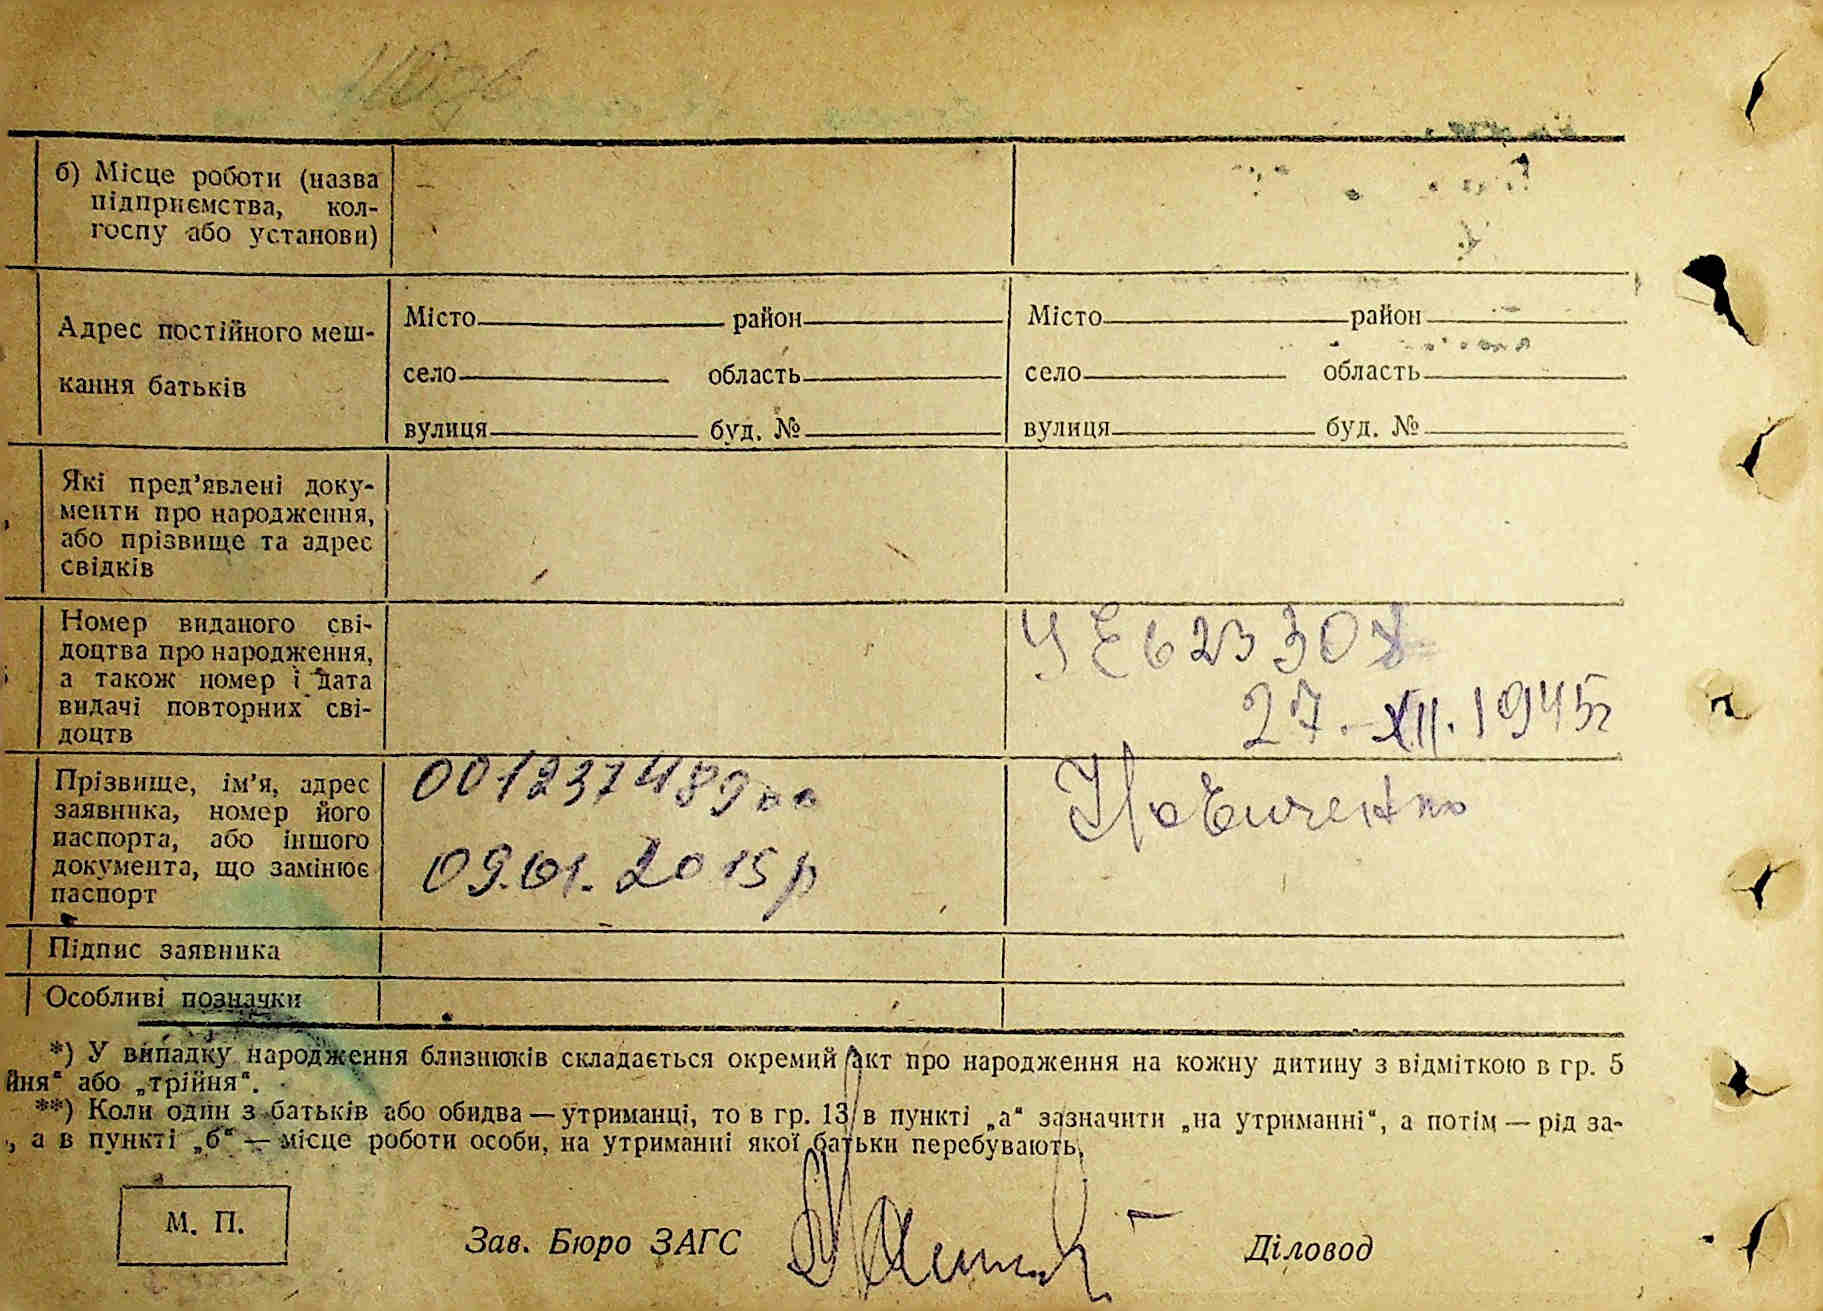 б) Місце роботи (назва
підприємства, кол-
госпу або установи)
Адрес постійного меш-
кання батьків
Місто район
село область
вулиця буд. №
Місто район
село область
вулиця буд. №
Які пред’явлені доку-
менти про народження,
або прізвище та адрес
свідків
Номер виданого сві-
доцтва про народження,
а також номер і дата
видачі повторних сві-
доцтв
27.-XII.1945г
Прізвище, ім’я, адрес
заявника, номер його
паспорта, або іншого
документа, що замінює
паспорт
00123748900
09.01.2015р
Підпис заявника
Особливі позначки
*) У випадку народження близнюків складається окремий акт про народження на кожну дитину з відміткою в гр. 5
йня“ або „трійня“.
**) Коли один з батьків або обидва — утриманці, то в гр. 13 в пункті „а“ зазначити „на утриманні“, а потім — рід за-
, а в пункті „б“ — місце роботи особи, на утриманні якої батьки перебувають.
М. П.
Зав. Бюро ЗАГС
Діловод